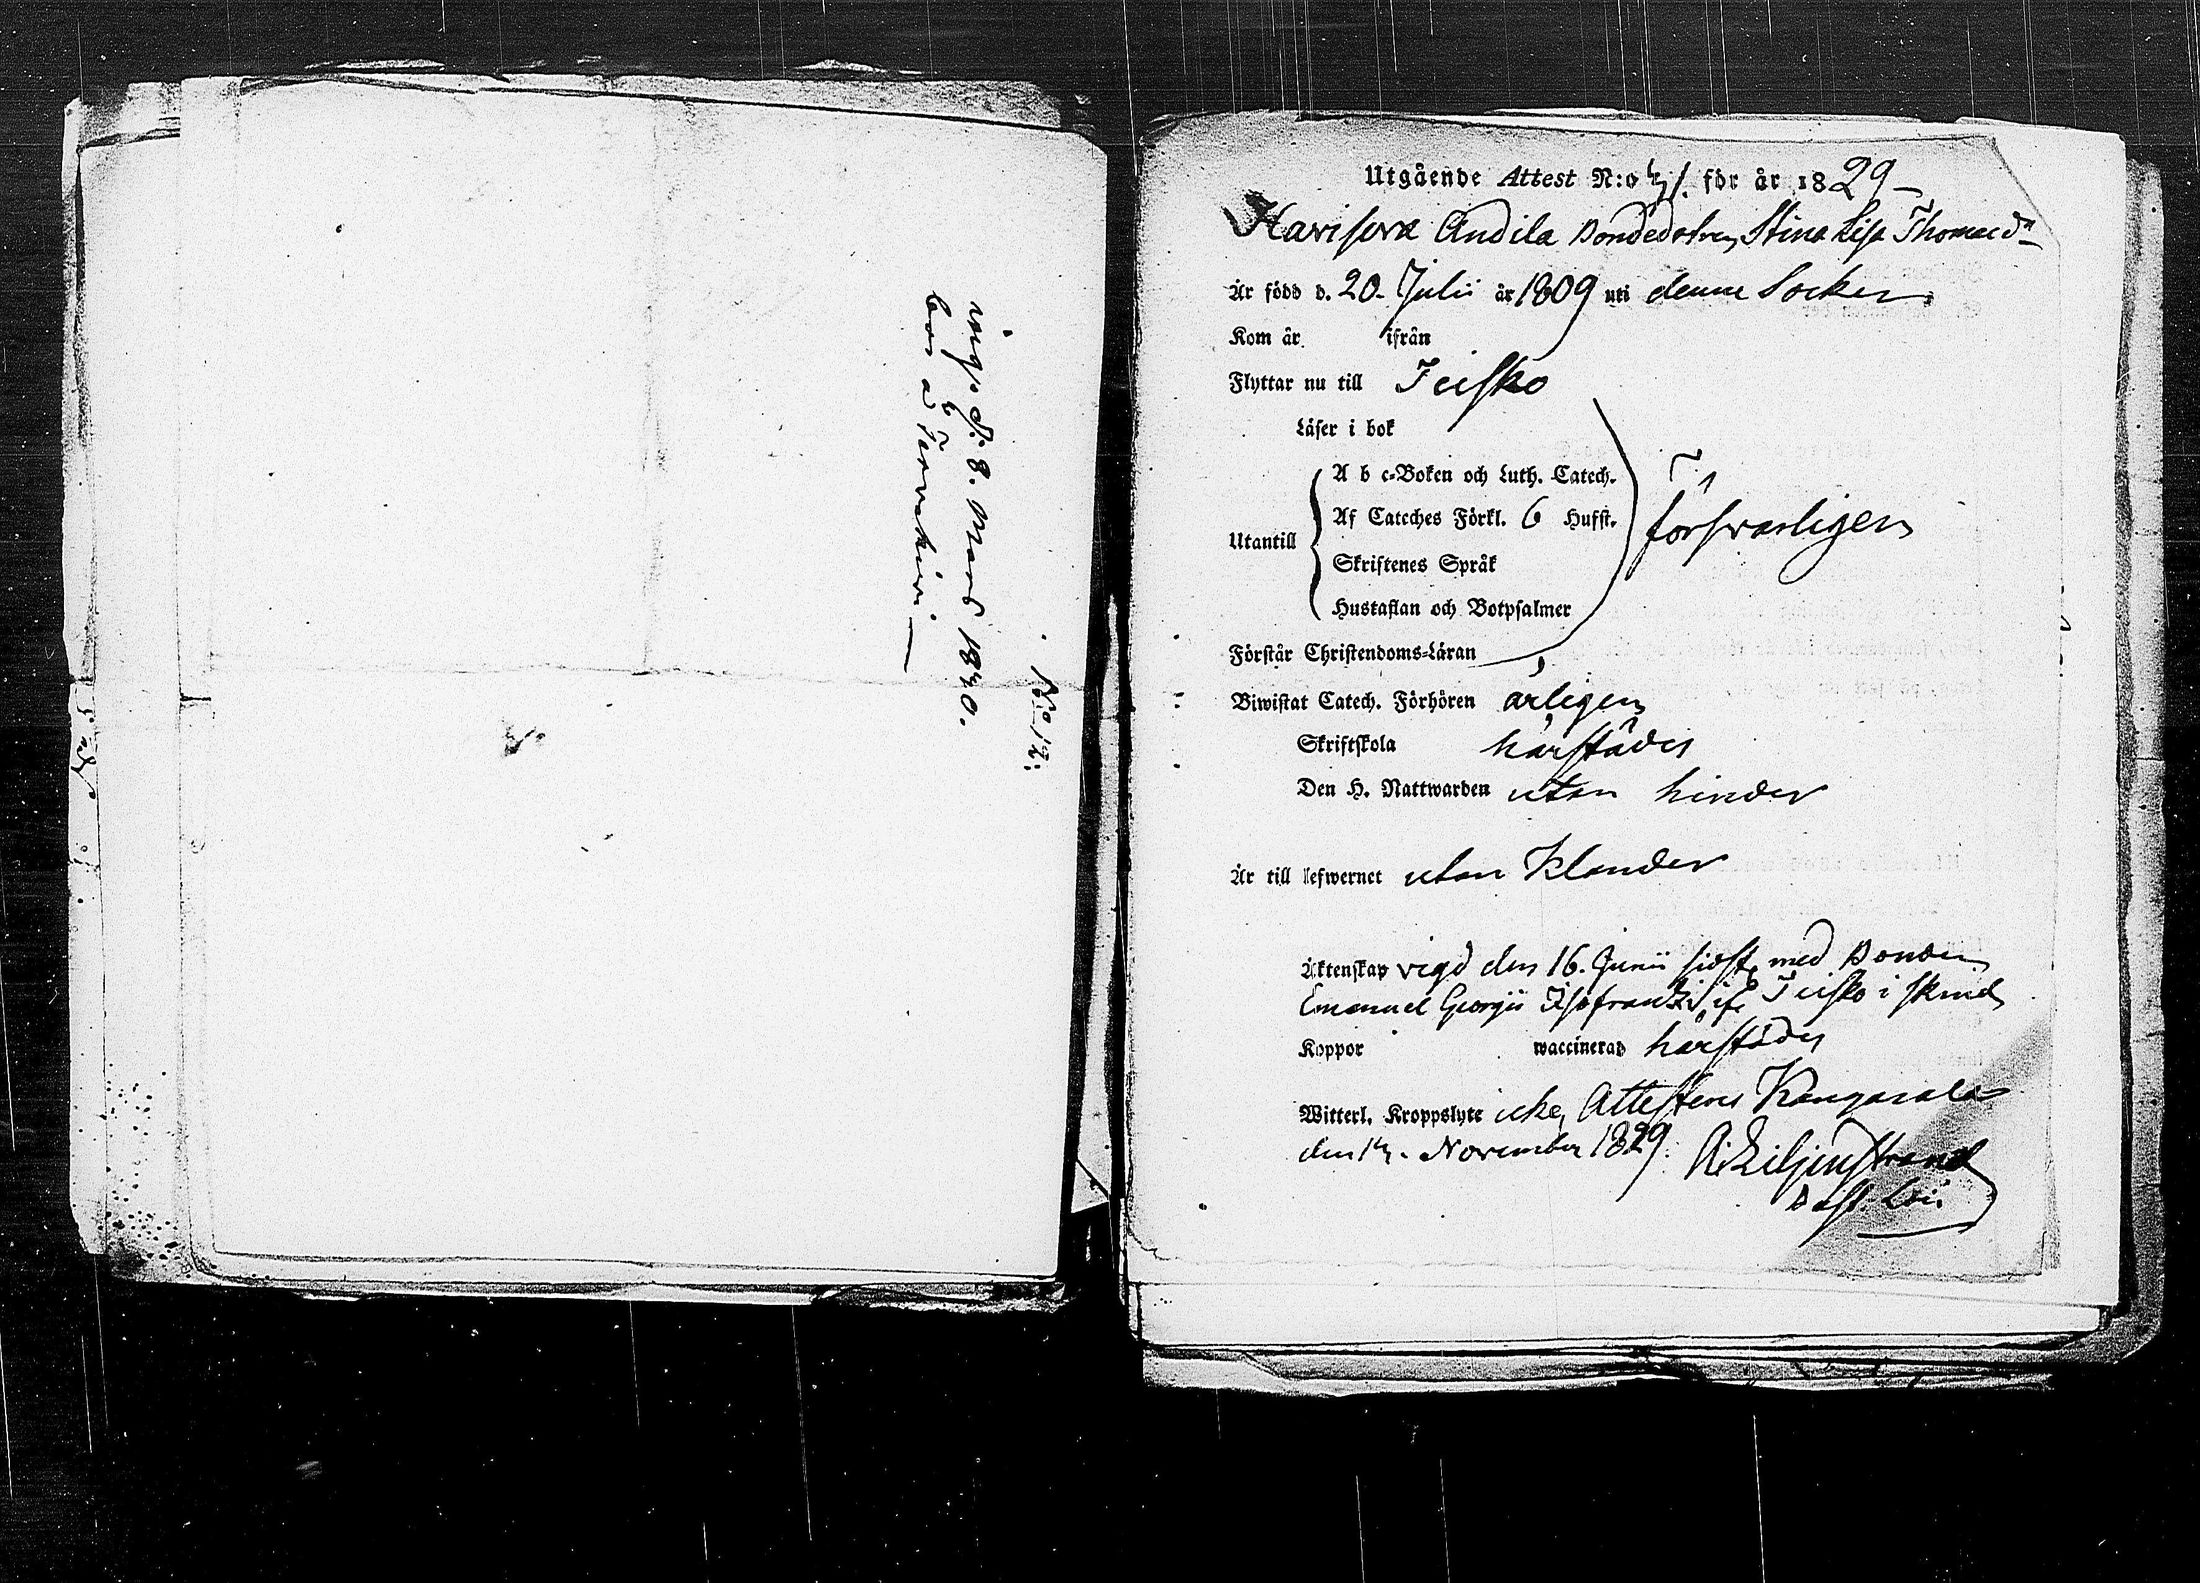 No 12.
ing. d: 8. Mars 1830.
bor å Tervakivi
Utgående Attest N:o 41. för år 1829
Havisova Andila Bondedotren Stina Lisa Thomasdr
Är född d. 20. Julii år 1809 uti denne Socken
Kom år ifrån
Flyttar nu till Teisko
Läser i bok
A b c-Boken och Luth. Catech.
Af Cateches Förkl. 6 Hufst.
försvarligen
Utantill
Skriftenes Språk
Hustaflan och Botpsalmer
Förstår Christendoms-Läran
Biwistat Catech. Förhören årligen
Skriftskola härstädes
Den H. Nattwarden utan hinder
Är till lefwernet utan klander
Äktenskap vigd den 16. Junii sidst. med Bonden
Emanuel Georgii Isofrantzi if. Teisko i skrud
Koppor waccinerad härstädes
Witterl. Kroppslyte icke, Attesterar Kangasala
den 14. November 1829. A: Liljenstrand
Past. Loci